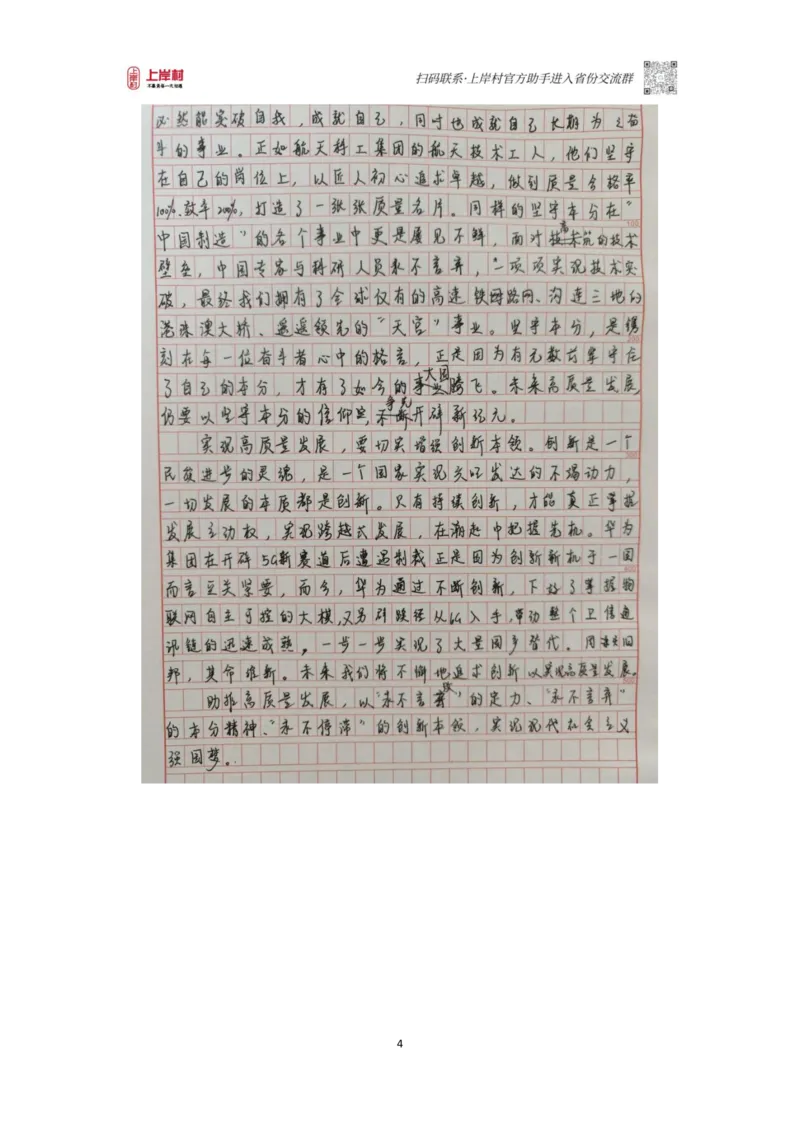 上岸村
上岸村
不辜负每一代沟通
扫码联系·上岸村官方助手进入省份交流群
必然能突破自我，成就自己，同时也成就自己长期为之奋
斗的事业。正如航天科工集团的航天技术工人，他们坚守
在自己的岗位上，以匠人初心追求卓越，做到质量合格率
100%.效率200%，打造了一张张质量名片。同样的坚守本分在“
中国制造”的各个事业中更是屡见不鲜，面对技高筑的技术
壁垒，中国专家与科研人员永不言弃，一项项实现技术突
破，最终我们拥有了全球仅有的高速铁路网、沟连三地的
港珠澳大桥、遥遥领先的“天宫”事业。坚守本分，是镌
刻在每一位奋斗者心中的格言，正是因为有无数前辈守在
了自己的本分，才有了如今的大国腾飞。未来高质量发展，
仍要以坚守本分的信仰争先开辟新纪元。
实现高质量发展，要切实增强创新本领。创新是一个
民族进步的灵魂，是一个国家实现兴旺发达的不竭动力，
一切发展的本质都是创新。只有持续创新，才能真正掌握
发展主动权，实现跨越式发展，在潮起中把握先机。华为
集团在开辟5G新赛道后遭遇制裁正是因为创新新机于一国
而言至关紧要，而今，华为通过不断创新，下好了掌握物
联网自主可控的大棋，又另辟路径从6G入手，带动整个卫信通
讯链的迅速成熟，一步一步实现了大量国产替代。周虽旧
邦，其命维新。未来我们将不懈地追求创新以实现高质量发展。
助推高质量发展，以“永不言败”的定力、“永不言弃”
的本分精神、“永不停滞”的创新本领，实现现代社会主义
强国梦。
4